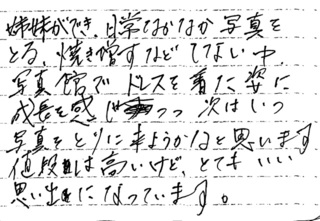 姉妹ができ、日常なかなか写真を
とる、焼き増すなどしてない中、
写真館でドレスを着た姿に
成長を感じつつ次はいつ
写真をとりに来ようかなと思います
値段は高いけど、とてもいい
思い出になっています。